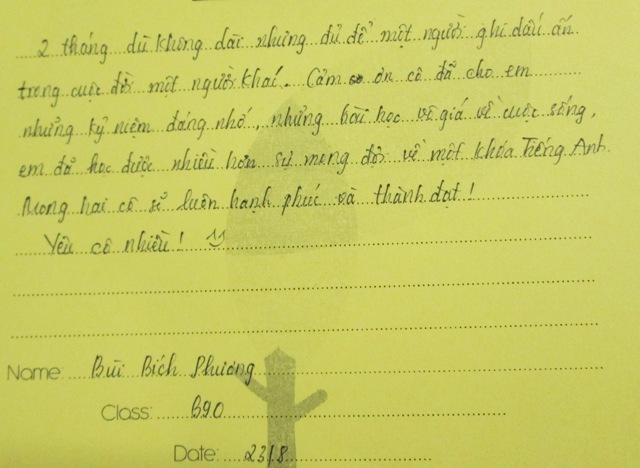 2 tháng dù không dài nhưng đủ để một người ghi dấu ấn
trong cuộc đời một người khác. Cảm ơn cô đã cho em
những kỷ niệm đáng nhớ, những bài học vô giá về cuộc sống,
em đã học được nhiều hơn sự mong đợi về một khóa Tiếng Anh.
Mong hai cô sẽ luôn hạnh phúc và thành đạt!
Yêu cô nhiều!
Name: Bùi Bích Phương
Class: B90
Date: 23/8